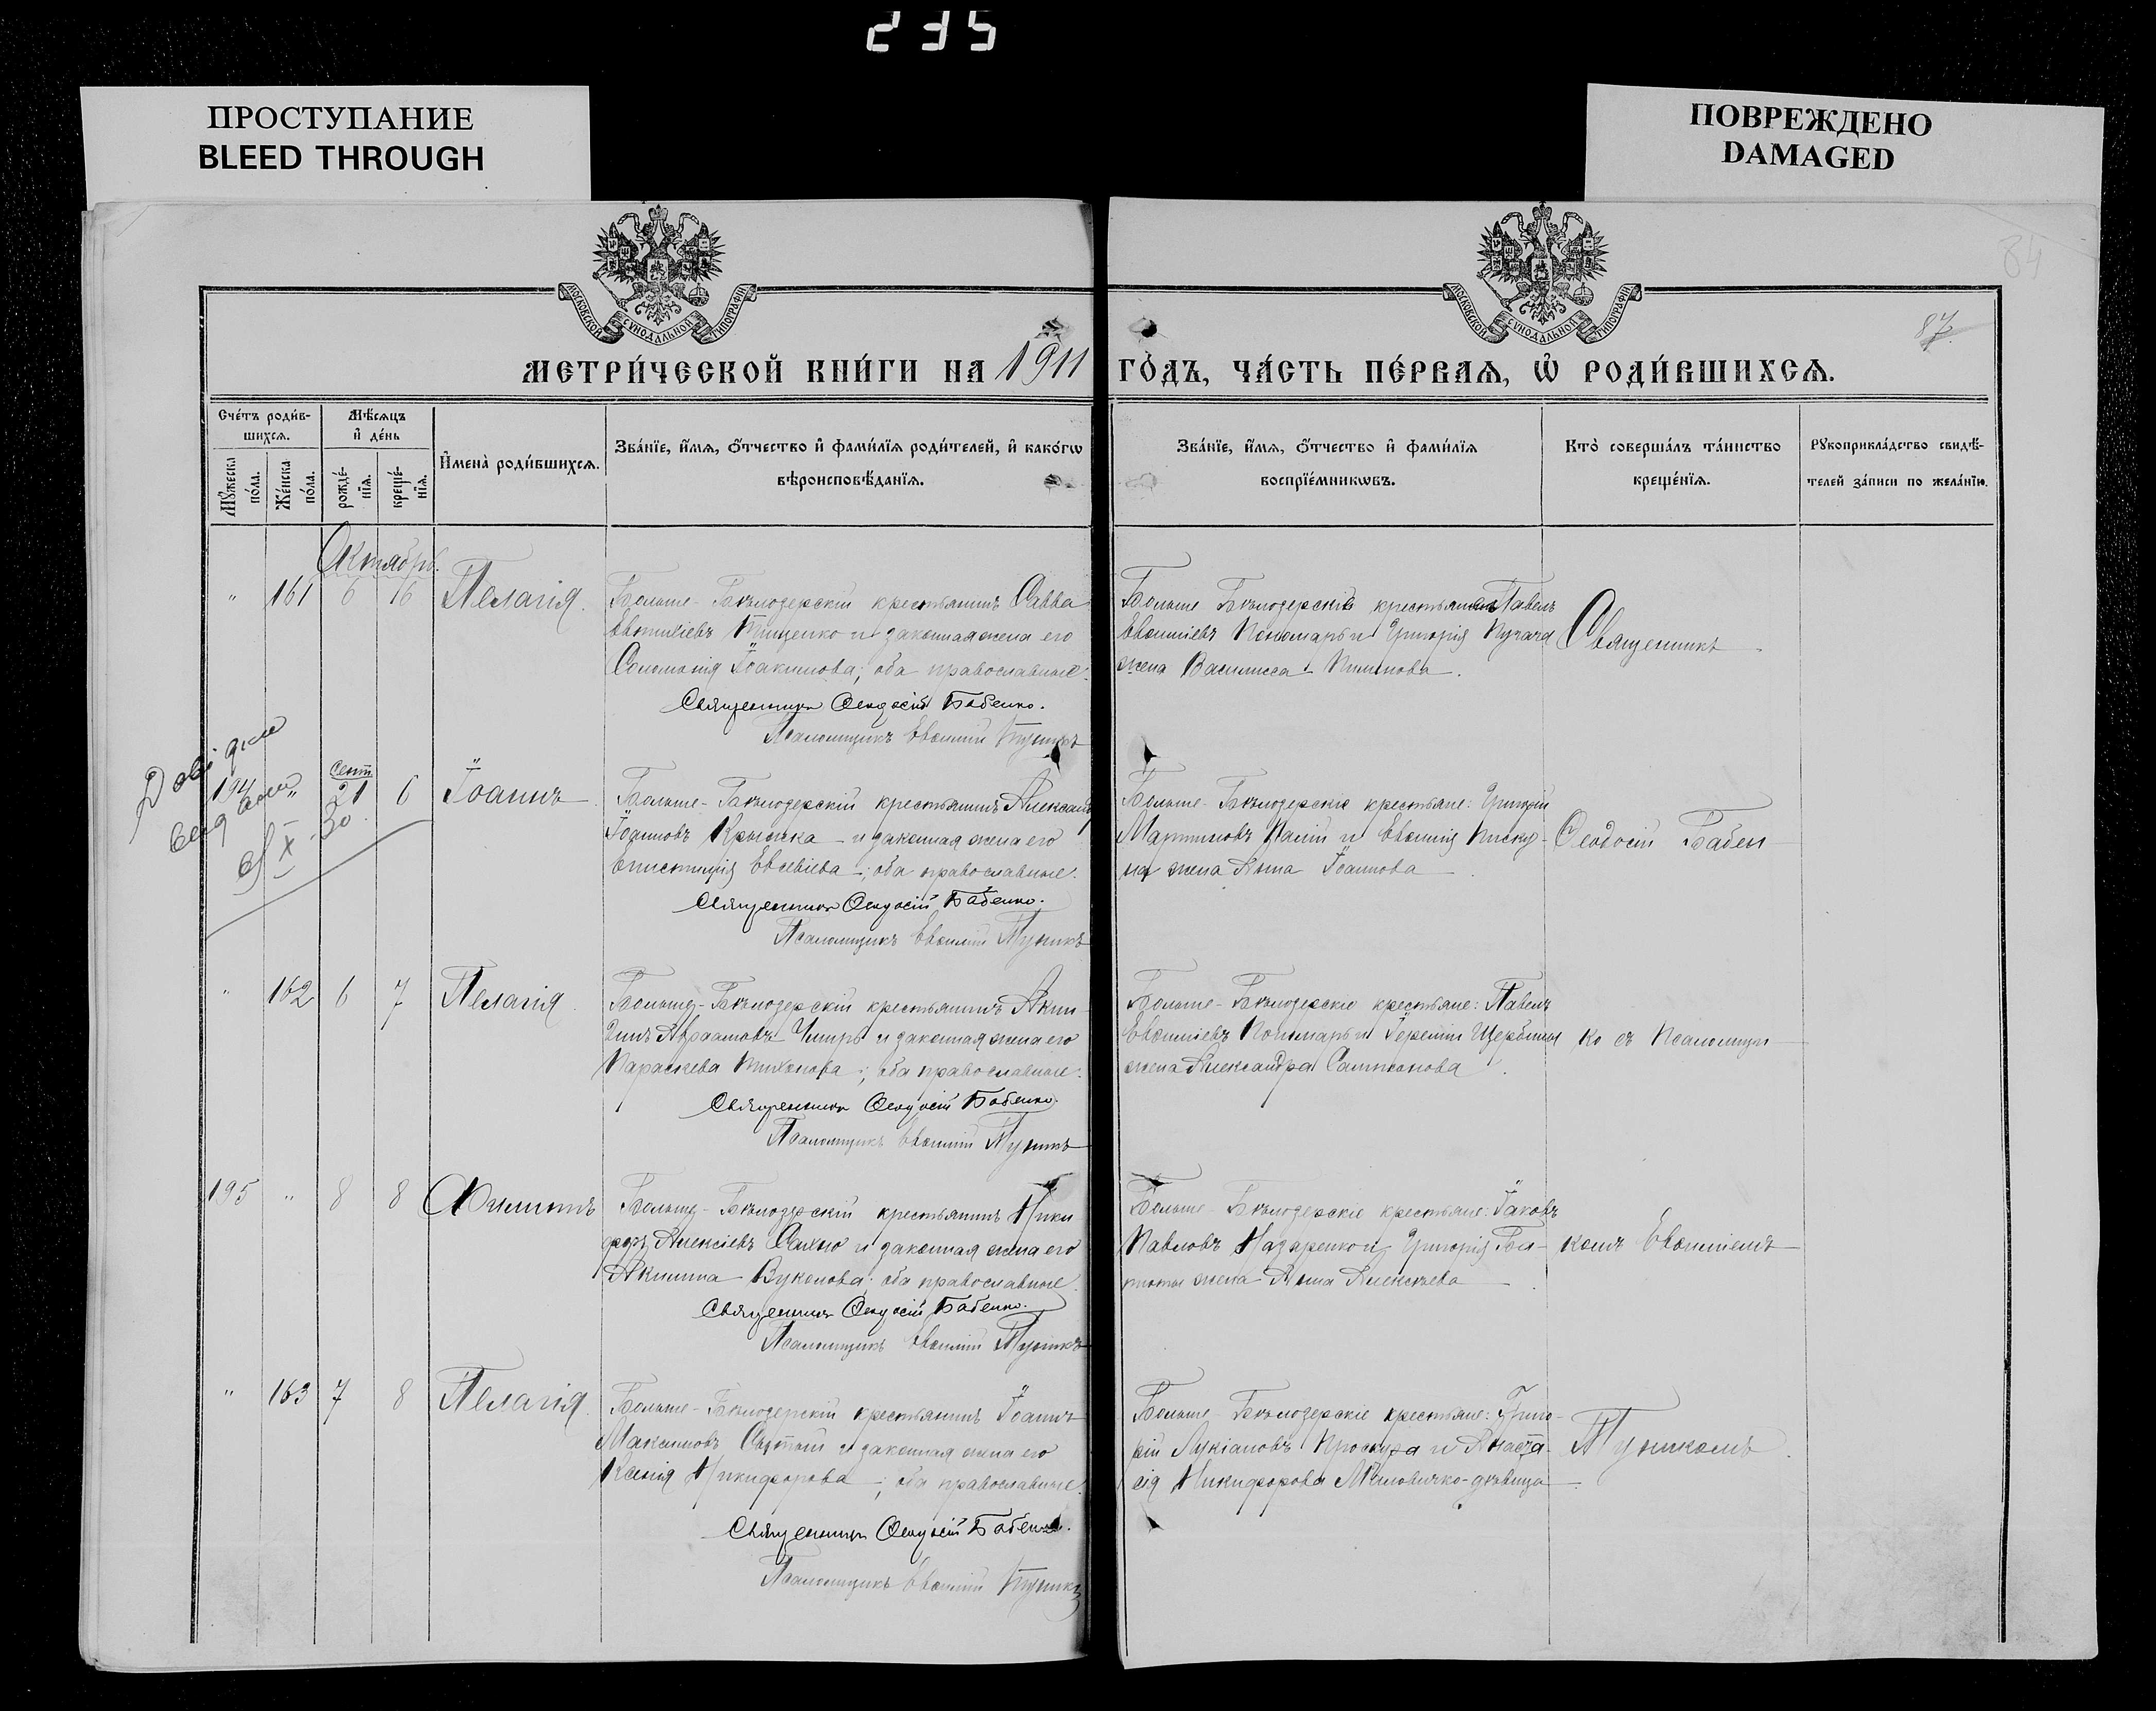 235
ПРОСТУПАНИЕ
BLEED THROUGH
ПОВРЕЖДЕНО
DAMAGED
84
87
МОСКОВСКОЙ СѴНОДАЛЬНОЙ ТИПОГРАФІИ
МОСКОВСКОЙ СѴНОДАЛЬНОЙ ТИПОГРАФІИ
МЕТРИ́ЧЕСКОЙ КНИ́ГИ НА 1911 ГО́ДЪ, ЧА́СТЬ ПЕ́РВАѦ, Ѡ҆ РОДИ́ВШИХСѦ.
Сче́тъ роди́в-
шихсѧ.
Мѣ́сѧцъ
и҆ де́нь
Мꙋ́жеска
по́ла.
Же́нска
по́ла.
рожде́-
нїѧ.
креще́-
нїѧ.
И҆мена̀ роди́вшихсѧ.
Зва́нїе, и҆́мѧ, ѻ҆́тчество и҆ фами́лїѧ роди́телей, и҆ како́гѡ
вѣроисповѣ́данїѧ.
Зва́нїе, и҆́мѧ, ѻ҆́тчество и҆ фами́лїѧ
воспрїе́мникѡвъ.
Кто̀ соверша́лъ та́инство
креще́нїѧ.
Рꙋкоприкла́дство свидѣ́-
телей за́писи по жела́нїю.
Октябрь.
" 161 6 16 Пелагія.
Больше-Бѣлозерскій крестьянинъ Савва
Евѳиміевъ Тищенко и законная жена его
Соломонія Іоакимова; оба православные.
Священникъ Ѳеодосій Бабенко.
Псаломщикъ Евѳимій Пуникъ
Больше Бѣлозерскіе крестьяне Павелъ
Евѳиміевъ Пономарь и Григорія Пугача
жена Василисса Пиминова.
Священникъ
194 " Сент. 21 6 Іоаннъ
X 30
Больше-Бѣлозерскій крестьянинъ Александръ
Іоанновъ и законная жена его
Епистимія Евсевіева; оба православные.
Священникъ Ѳеодосій Бабенко.
Псаломщикъ Евѳимій Пуникъ
Больше-Бѣлозерскіе крестьяне: Григорій
Мартиновъ Палій и Евѳимія Писку-
на жена Анна Іоаннова
Ѳеодосій Бабен-
" 162 6 7 Пелагія.
Больше-Бѣлозерскій крестьянинъ Акин-
динъ Авраамовъ и законная жена его
Параскева Тихонова; оба православные.
Священникъ Ѳеодосій Бабенко.
Псаломщикъ Евѳимій Пуникъ
Больше-Бѣлозерскіе крестьяне: Павелъ
Евѳиміевъ Пономарь и Іереміи Щербины
жена Александра Сампсонова.
ко съ Псаломщи-
195 " 8 8 Филиппъ
Больше-Бѣлозерскій крестьянинъ Ники-
форъ Алексіевъ и законная жена его
Акилина Вуколова; оба православные.
Священникъ Ѳеодосій Бабенко.
Псаломщикъ Евѳимій Пуникъ
Больше-Бѣлозерскіе крестьяне: Іаковъ
Павловъ Назаренко и Григорія
жена Анна Алексѣева
комъ Евѳиміемъ
" 163 7 8 Пелагія.
Больше-Бѣлозерскій крестьянинъ Іоаннъ
Максимовъ Сытый и законная жена его
Ксенія Никифорова; оба православные.
Священникъ Ѳеодосій Бабенко.
Псаломщикъ Евѳимій Пуникъ
Больше-Бѣлозерскіе крестьяне: Григо-
рій Лукіановъ Проскура и Анаста-
сія Никифорова дѣвица.
Пуникомъ.